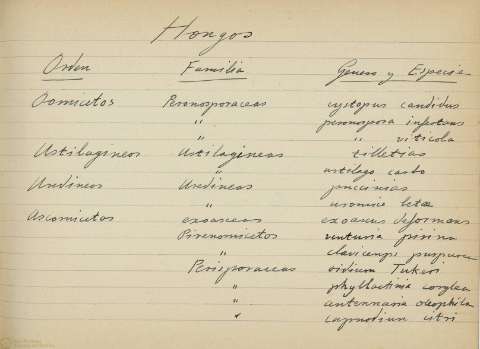 Hongos
Orden Familia Genero y Especie
Oomicetos Peronosporaceas cystopus candidus
" peronospora infestans
" " viticola
Ustilagineos Ustilagineas tilletias
" ustilago carbo
Uredineos Uredineas puccinias
" uromice betae
Ascomicetos exoasceas exoascus deformans
Pirenomicetos venturia pirina
" claviceps purpurea
Perisporaceas oidium Tukeri
" phyllactinia corylea
" antennaria oleophila
" capnodium citri